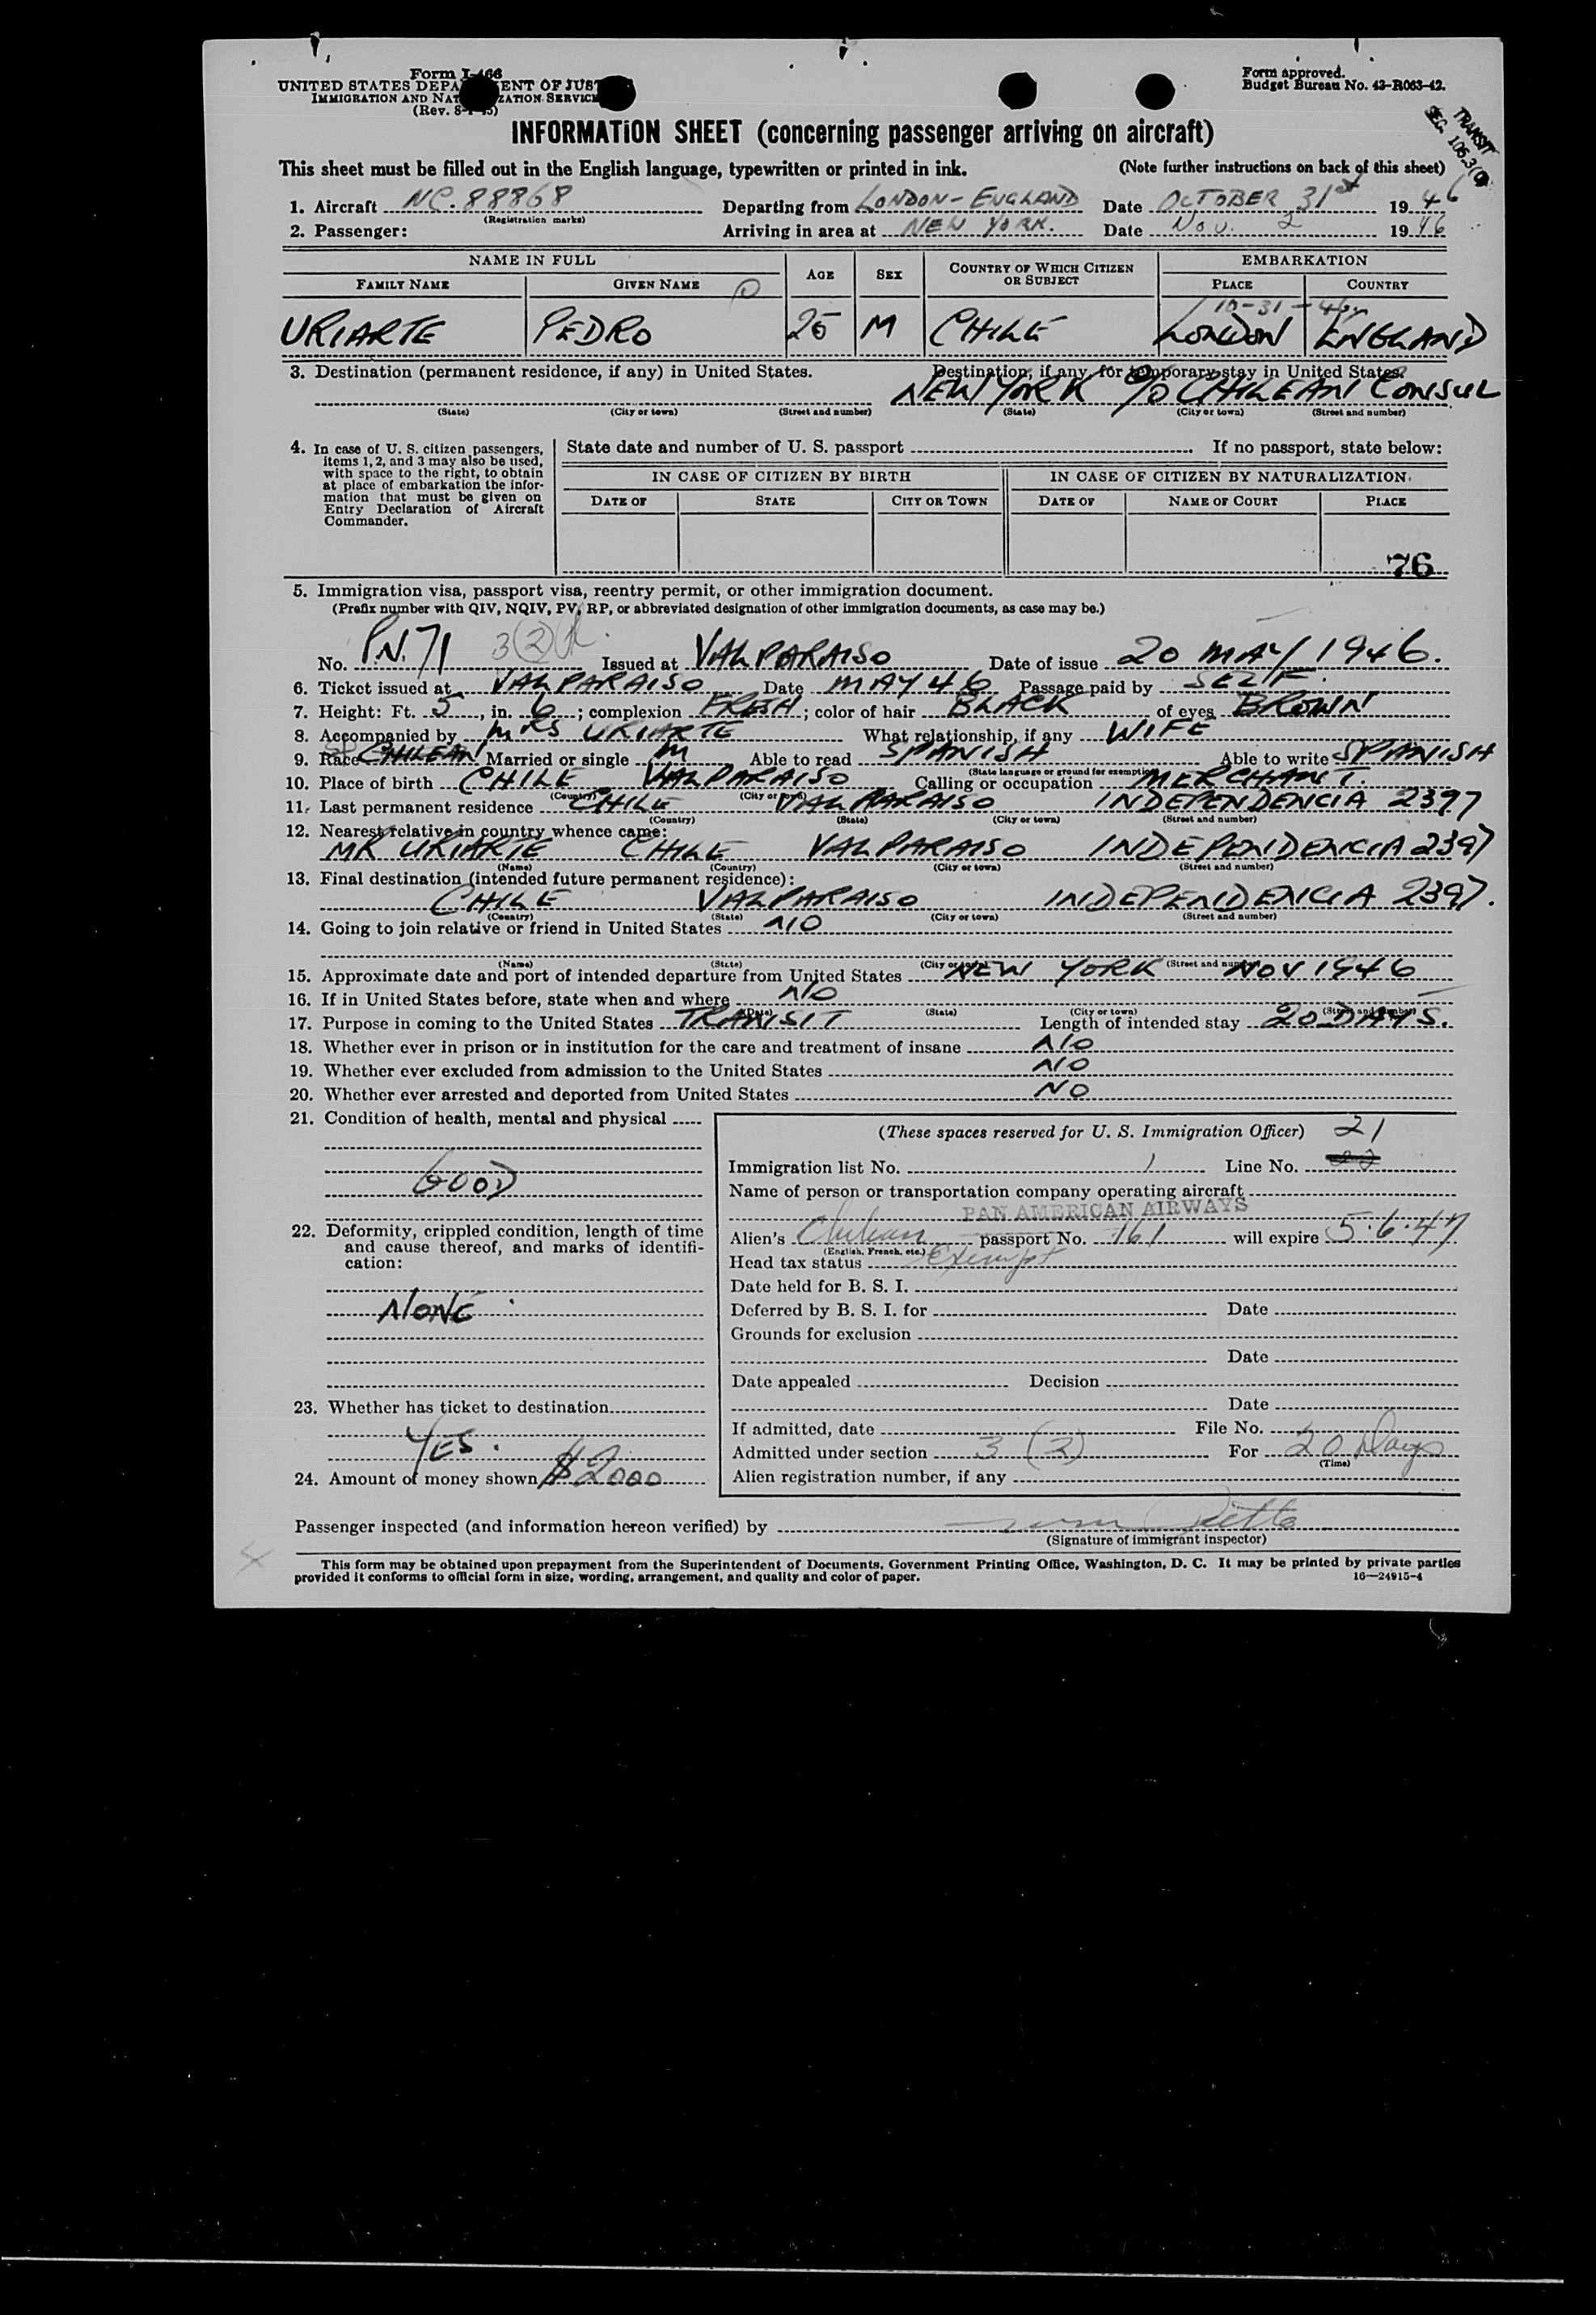 Form I-466
UNITED STATES DEPARTMENT OF JUSTICE
IMMIGRATION AND NATURALIZATION SERVICE
(Rev. 8-1-45)
Form approved.
Budget Bureau No. 43-R063-42.
TRANSIT
SEC. 105.3(
INFORMATION SHEET (concerning passenger arriving on aircraft)
This sheet must be filled out in the English language, typewritten or printed in ink. (Note further instructions on back of this sheet)
1. Aircraft NC.88868 Departing from LONDON-ENGLAND Date OCTOBER 31st 1946
(Registration marks)
2. Passenger: Arriving in area at NEW YORK. Date Nov. 2 1946
NAME IN FULL AGE SEX COUNTRY OF WHICH CITIZEN OR SUBJECT EMBARKATION
FAMILY NAME GIVEN NAME PLACE COUNTRY
10-31-46
URIARTE PEDRO 25 M CHILE LONDON ENGLAND
3. Destination (permanent residence, if any) in United States. Destination, if any, for temporary stay in United States.
NEW YORK c/o CHILEAN CONSUL
(State) (City or town) (Street and number) (State) (City or town) (Street and number)
4. In case of U. S. citizen passengers, items 1, 2, and 3 may also be used, with space to the right, to obtain at place of embarkation the information that must be given on Entry Declaration of Aircraft Commander.
State date and number of U. S. passport If no passport, state below:
IN CASE OF CITIZEN BY BIRTH IN CASE OF CITIZEN BY NATURALIZATION
DATE OF STATE CITY OR TOWN DATE OF NAME OF COURT PLACE
76
5. Immigration visa, passport visa, reentry permit, or other immigration document.
(Prefix number with QIV, NQIV, PV, RP, or abbreviated designation of other immigration documents, as case may be.)
No. P.N.71 3(2) Issued at VALPARAISO Date of issue 20 MAY 1946.
6. Ticket issued at VALPARAISO Date MAY 46 Passage paid by SELF.
7. Height: Ft. 5, in. 6; complexion FRESH; color of hair BLACK of eyes BROWN
8. Accompanied by MRS URIARTE What relationship, if any WIFE
9. Race SP CHILEAN Married or single M Able to read SPANISH Able to write SPANISH
(State language or ground for exemption)
10. Place of birth CHILE VALPARAISO Calling or occupation MERCHANT.
(Country) (City or town)
11. Last permanent residence CHILE VALPARAISO INDEPENDENCIA 2397
(Country) (State) (City or town) (Street and number)
12. Nearest relative in country whence came:
MR URIARTE CHILE VALPARAISO INDEPENDENCIA 2397
(Name) (Country) (City or town) (Street and number)
13. Final destination (intended future permanent residence):
CHILE VALPARAISO INDEPENDENCIA 2397.
(Country) (State) (City or town) (Street and number)
14. Going to join relative or friend in United States NO
(Name) (State) (City or town) (Street and number)
15. Approximate date and port of intended departure from United States NEW YORK NOV 1946
16. If in United States before, state when and where NO
(Date) (State) (City or town) (Street and number)
17. Purpose in coming to the United States TRANSIT Length of intended stay 20 DAYS.
18. Whether ever in prison or in institution for the care and treatment of insane NO
19. Whether ever excluded from admission to the United States NO
20. Whether ever arrested and deported from United States NO
21. Condition of health, mental and physical
GOOD
22. Deformity, crippled condition, length of time and cause thereof, and marks of identification:
NONE
23. Whether has ticket to destination
YES.
24. Amount of money shown $2000
(These spaces reserved for U. S. Immigration Officer) 21
Immigration list No. 1 Line No.
Name of person or transportation company operating aircraft
PAN AMERICAN AIRWAYS
Alien's Chilean passport No. 161 will expire 5.6.47
(English, French, etc.)
Head tax status Exempt
Date held for B. S. I.
Deferred by B. S. I. for Date
Grounds for exclusion
Date
Date appealed Decision
Date
If admitted, date File No.
Admitted under section 3 (2) For 20 Days
(Time)
Alien registration number, if any
Passenger inspected (and information hereon verified) by
(Signature of immigrant inspector)
This form may be obtained upon prepayment from the Superintendent of Documents, Government Printing Office, Washington, D. C. It may be printed by private parties
provided it conforms to official form in size, wording, arrangement, and quality and color of paper. 16—24915-4